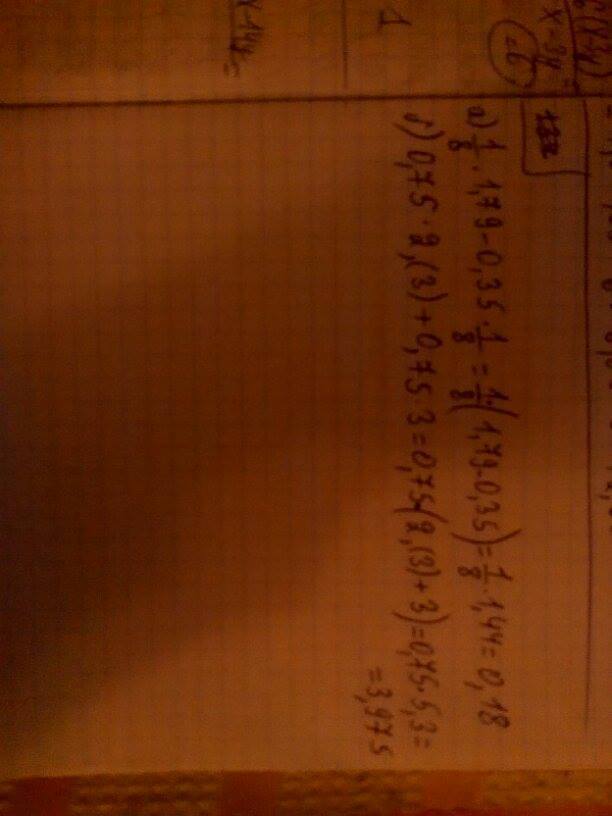 6(x-3y)
x-3y
=6
1
x-14y=
а) 1/8 · 1,79-0,35 · 1/8 = 1/8(1,79-0,35)= 1/8 · 1,44=0,18
б) 0,75 · 2,(3)+0,75 · 3=0,75(2,(3)+3)=0,75 · 5,3=
=3,975